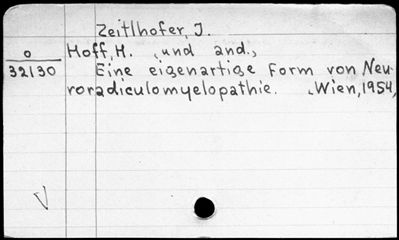 Zeitlhofer, J.
o Hoff, H. , und and.,
32130 Eine eigenartige Form von Neu-
roradiculomyelopathie. , Wien, 1954,